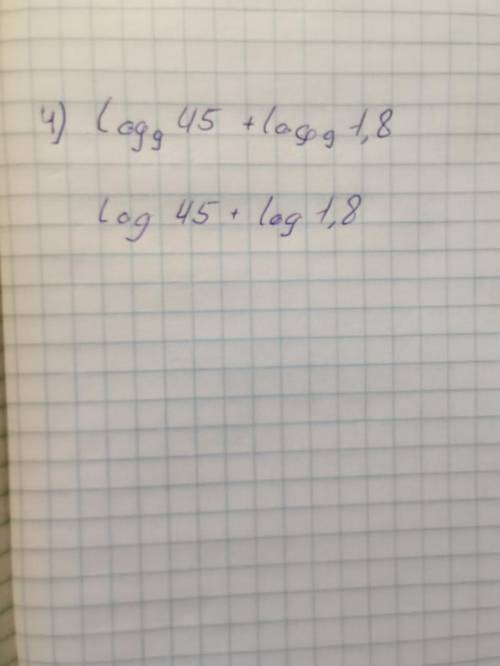 4) log₉ 45 + log₉ 1,8
log 45 + log 1,8